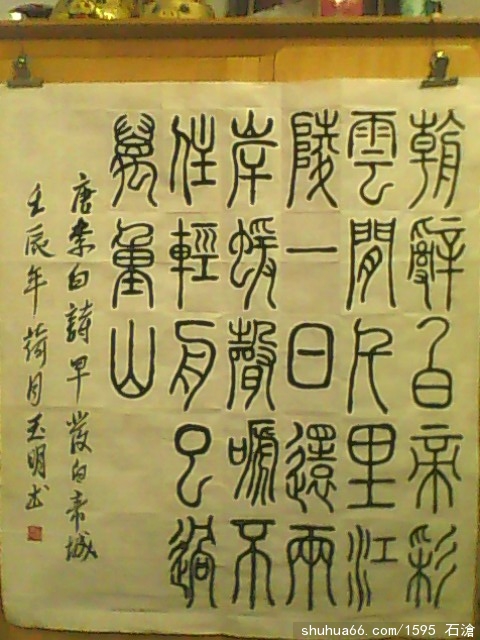 朝辭白帝彩
雲閒千里江
陵一日還兩
岸蝯聲嗁不
住輕舟已過
萬重山
唐李白詩早發白帝城
壬辰年荷月玉明书
shuhua66.com/1595 石滄